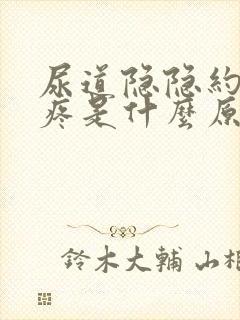 尿道隐隐約
疼是什麼原
鈴木大輔 山相